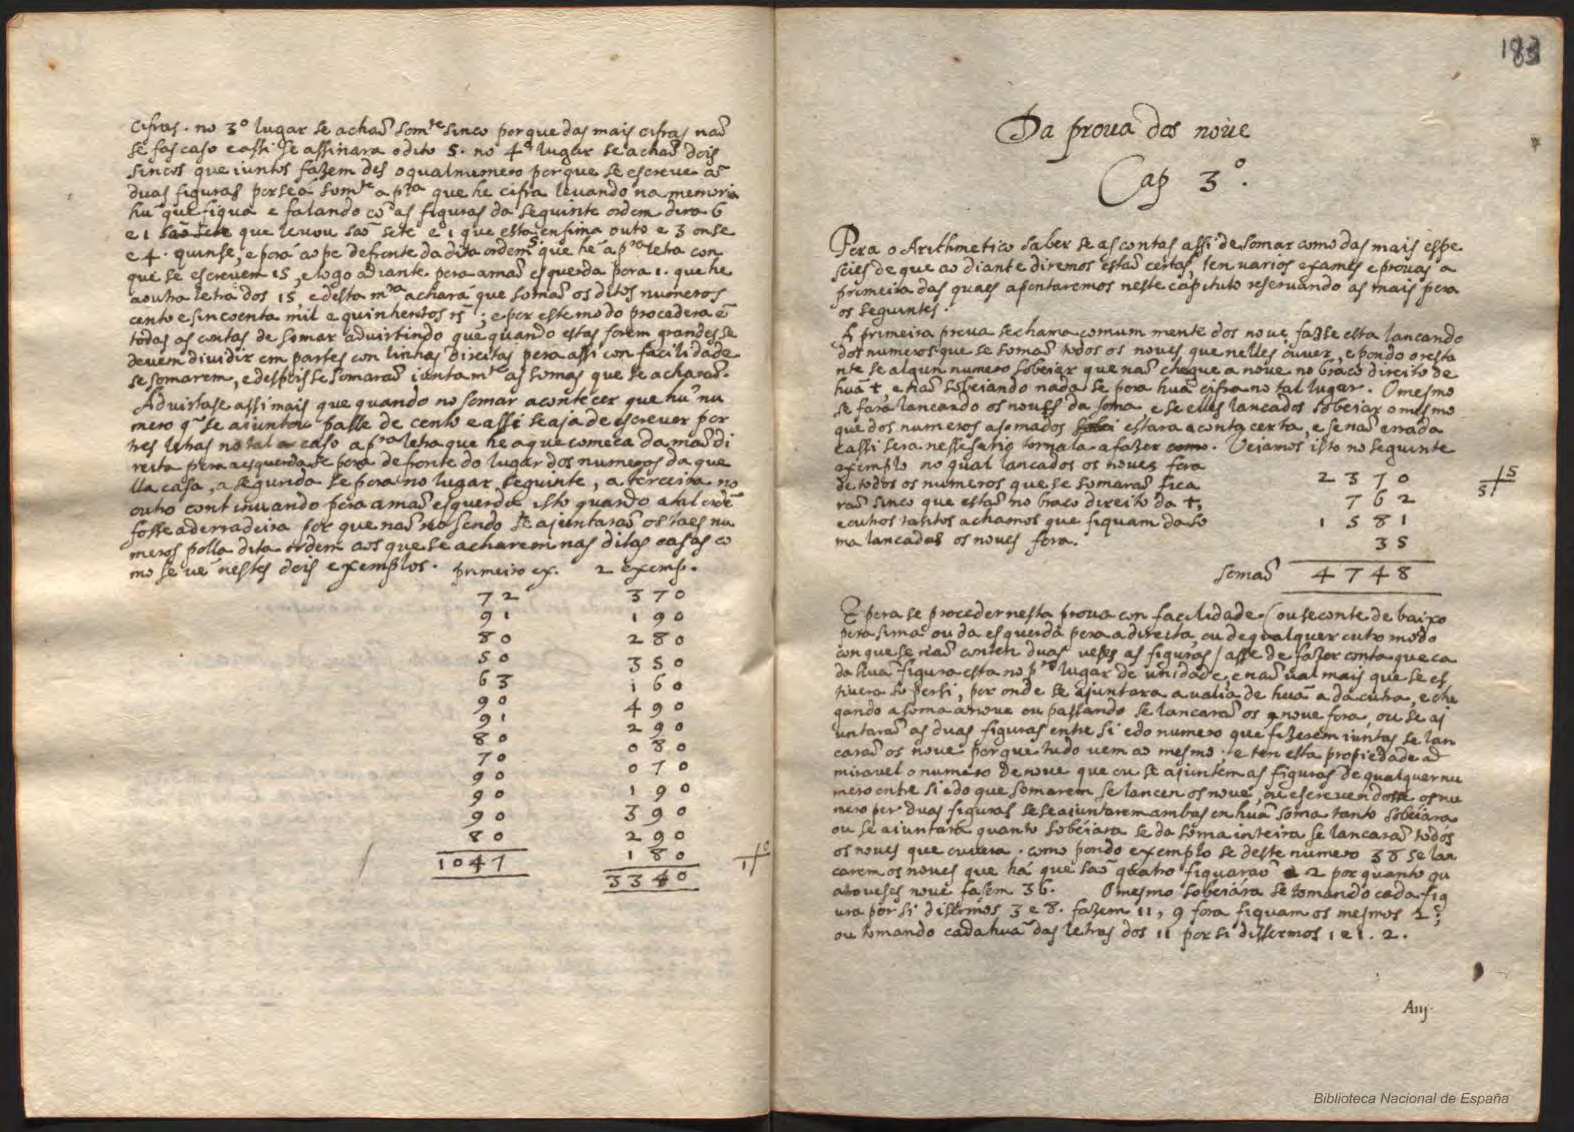 Cifras. no 3º lugar se achaõ somte sinco porque das mais cifras naõ
se fas caso e assi se assinara o dito 5. no 4º lugar se achaõ dois
sincos que iuntos fazem des o qual numero porque se escreve cõ
duas figuras porseâ somte a pra que he cifra levando na memoria
hũ que fiqua e falando cõ as figuras da seguinte ordem dira 6
e 1 saõ sete que levou saõ sete e 1 que esta ensima outo e 3 onse
e 4. quinse, e porá ao pe defronte da dita ordem 5 que hé a pra letra con
que se escrevem 15, e logo adiante pera a maõ esquerda pora 1. que he
a outra letra dos 15, e desta mra achará que somaõ os ditos numeros
cento e sincoenta mil e quinhentos rs; e por este modo procedera ẽ
todas as contas de somar advirtindo que quando estas forem grandes se
devem dividir em partes con linhas direitas pera assi con facilidade
se somarem, e despois se somaraõ iuntamte as somas que se acharaõ.
Advirtase assi mais que quando no somar acontecer que hũ nu
mero q se aiuntou passe de cento e assi se aja de escrever por
tres letras no tal caso a pra letra que he a que comeca da maõ di
reita pera a esquerda se pora defronte do lugar dos numeros da que
lla casa, a segunda se pora no lugar seguinte, a terceira no
outro continuando pera a maõ esquerda isto quando a tal ordẽ
fosse a derradeira por que naõ o sendo se ajuntaraõ os taes nu
meros polla dita ordem aos que se acharem nas ditas casas co
mo se vé nestes dois exemplos. primeiro ex. 2 exemp.
72 370
91 190
80 280
50 350
63 160
90 490
91 290
80 080
70 070
90 190
90 390
90 290
80 180
1047 3340
0
1 1
183
Da prova dos nove
Cap 3º.
Pera o Arithmetico saber se as contas assi de somar como das mais espe
scies de que ao diante diremos estaõ certas, ten varios exames e provas a
primeira das quaes apontaremos neste capitulo reservando as mais pera
os seguintes.
A primeira prova se chama comum mente dos nove, fasse esta lancando
dos numeros que se somaõ todos os noves que nelles ouver, e pondo o resta
nte se algun numero sobeiar que naõ chegue a nove no braço direito de
huã †, e naõ sobeiando nada se pora huã cifra no tal lugar. O mesmo
se fara lancando os noves da soma, e se elles lancados sobeiar o mesmo
que dos numeros asomados estara a conta certa, e se naõ errada
e assi sera nessesario tornala a fazer como. Vejamos isto no seguinte
exemplo no qual lancados os noves fora
de todos os numeros que se somaraõ fica
raõ sinco que estaõ no braço direito da †,
e outros tantos achamos que fiquam da so
ma lancados os noves fora.
2370
762
1581
35
somaõ 4748
5
5
E pera se proceder nesta prova con facilidade (ou se conte de baixo
pera sima ou da esquerda pera a direita, ou de qualquer outro modo
con que se naõ conten duas veses as figuras) asse de fazer conta que ca
da huã figura esta no pro lugar de unidade, e naõ val mais que se es
tivera so persi, por onde se ajuntara a valia de huã a da outra, e che
gando a soma a nove ou passando se lancaraõ os nove fora, ou se aj
untaraõ as duas figuras entre si e do numero que fizerem iuntas se lan
caraõ os nove porque tudo vem ao mesmo; e ten esta propiedade ad
miravel o numero de nove que ou se ajuntem as figuras de qualquer nu
mero entre si e do que somarem se lancen os nove, ou escrevendosse os nu
mero per duas figuras se se aiuntarem ambas en huã soma tanto sobeiara
ou se aiuntará quanto sobeiara se da soma inteira se lancaraõ todos
os noves que ouvera. como pondo exemplo se deste numero 38 se lan
carem os noves que há que saõ quatro fiquaraõ 2 por quanto qu
atro veses nove fasem 36. O mesmo sobeiára se tomando cada fig
ura por si disermos 3 e 8. fazem 11, 9 fora fiquam os mesmos 2;
ou tomando cada huã das letras dos 11 por si dissermos 1 e 1. 2.
Aiij.
Biblioteca Nacional de España